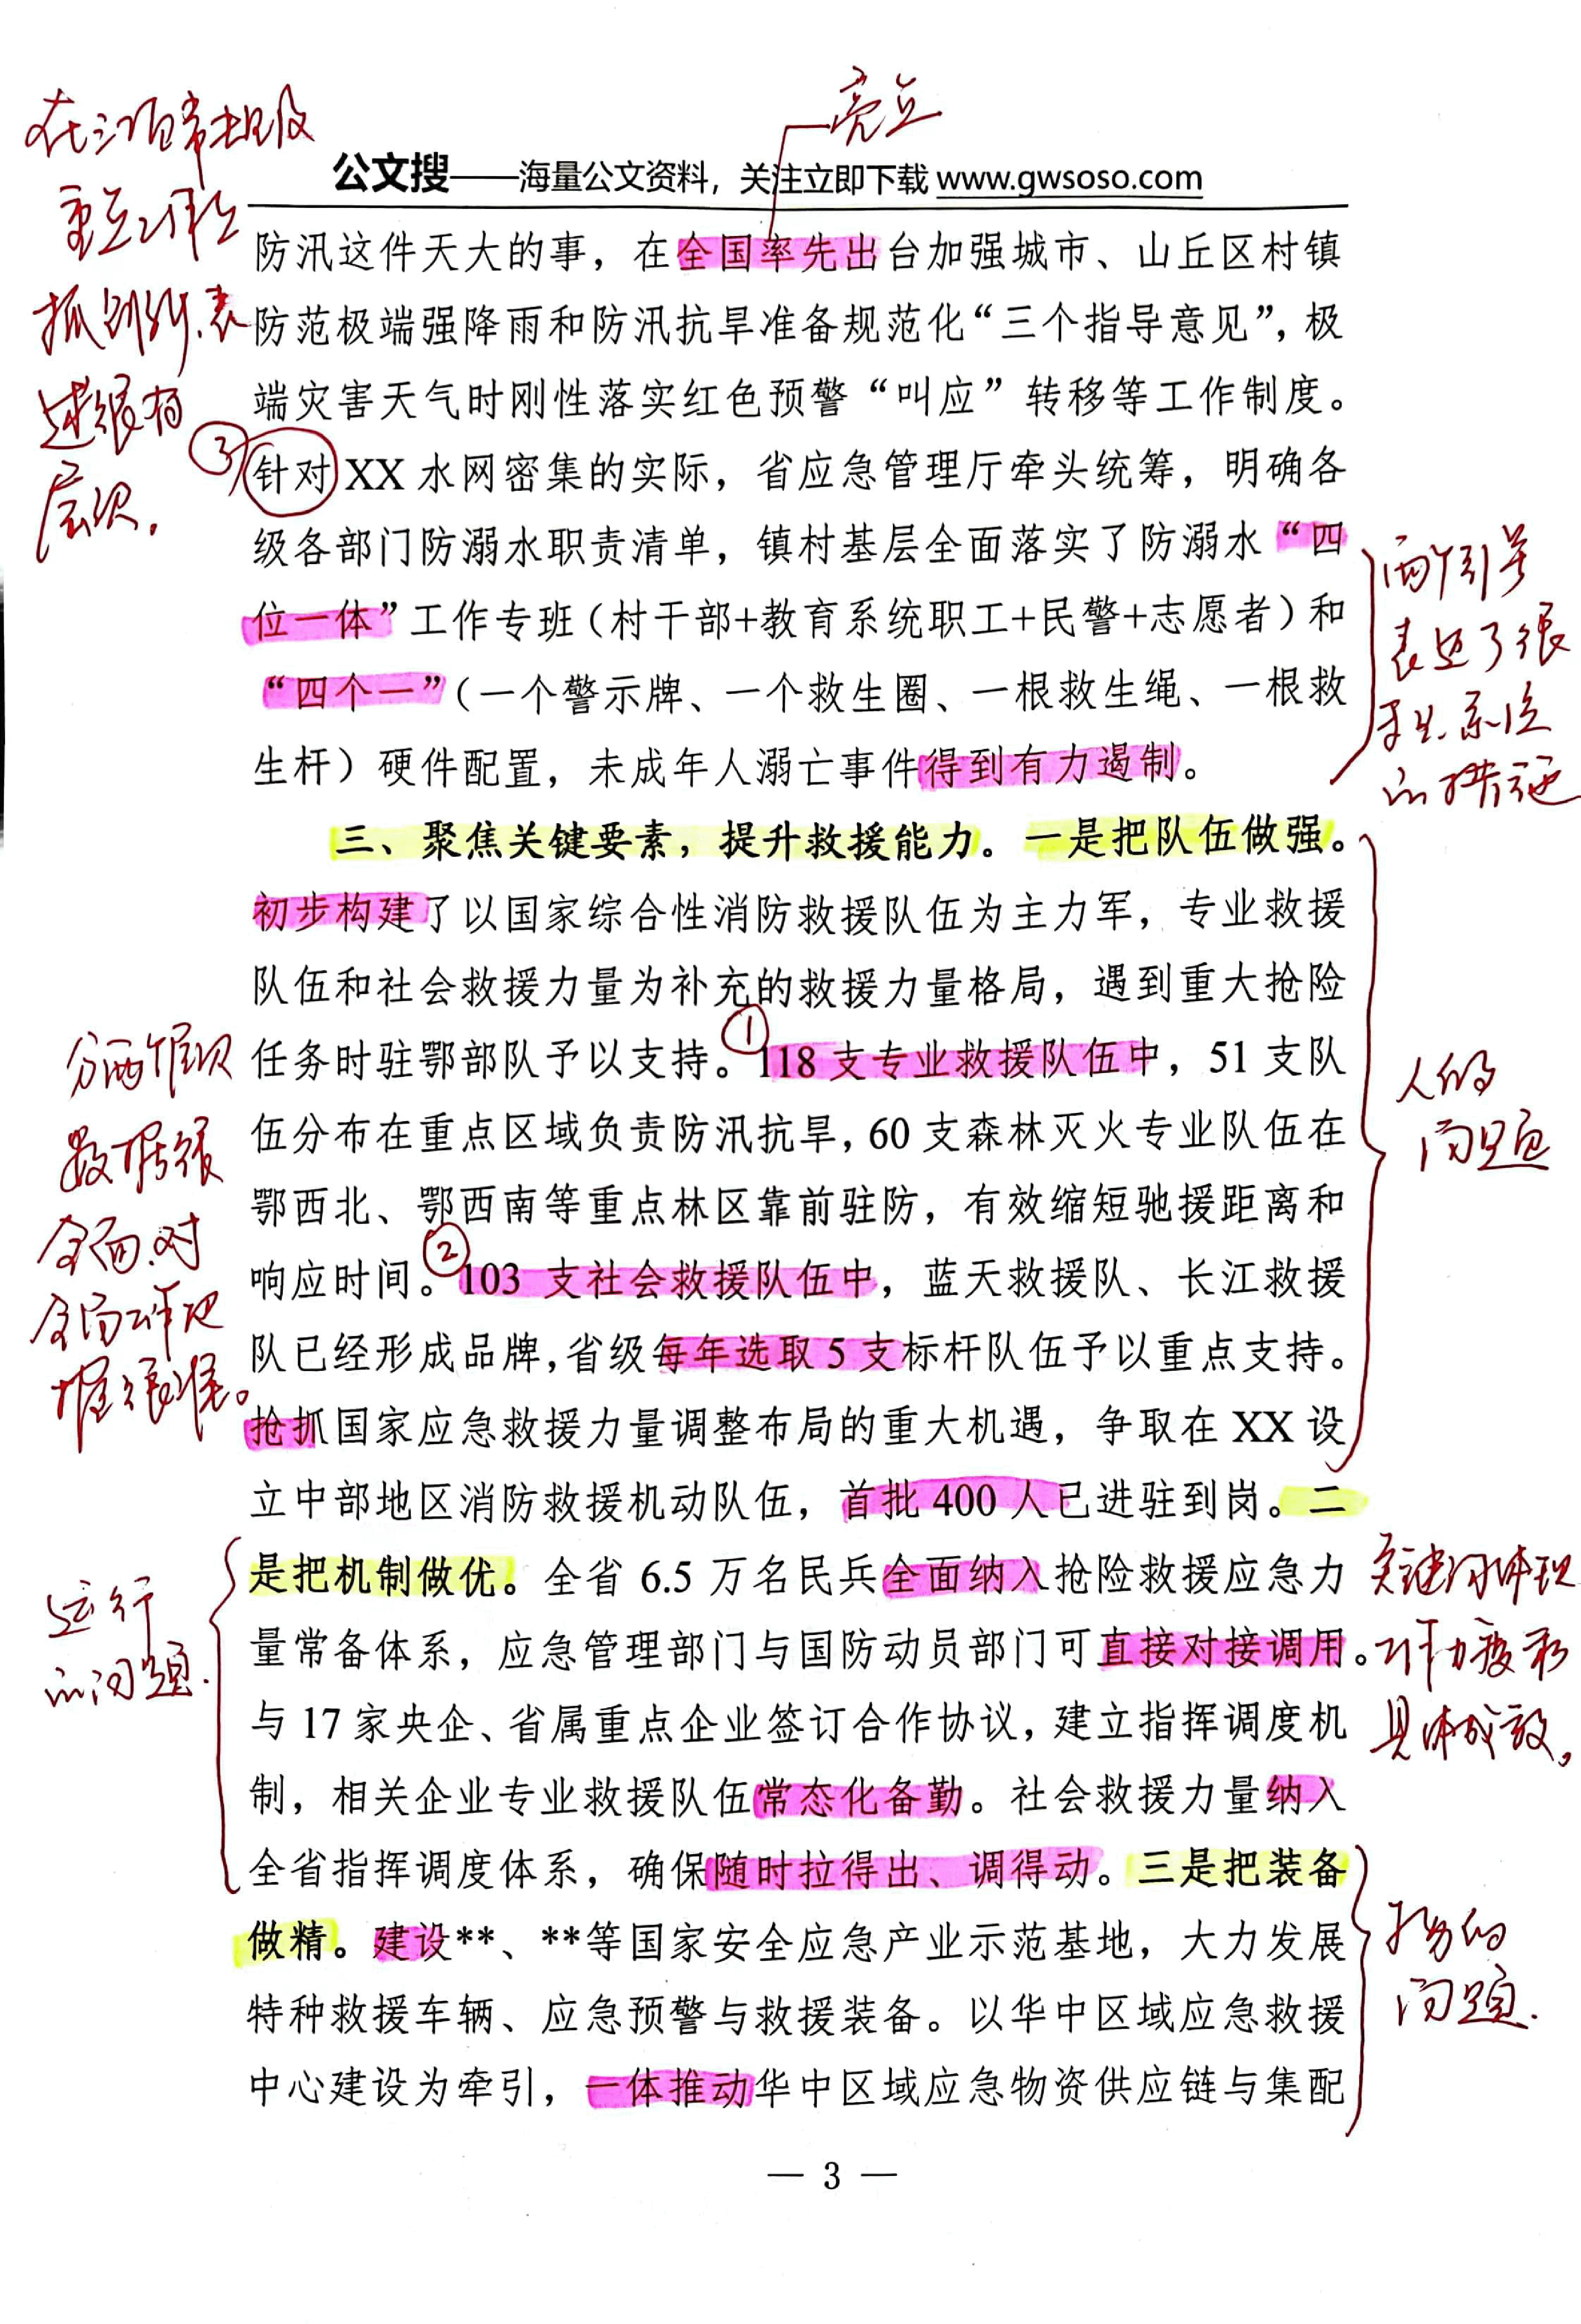 亮点
公文搜——海量公文资料，关注立即下载 www.gwsoso.com
防汛这件天大的事，在全国率先出台加强城市、山丘区村镇
防范极端强降雨和防汛抗旱准备规范化“三个指导意见”，极
端灾害天气时刚性落实红色预警“叫应”转移等工作制度。
③
针对 XX 水网密集的实际，省应急管理厅牵头统筹，明确各
级各部门防溺水职责清单，镇村基层全面落实了防溺水“四
位一体”工作专班（村干部+教育系统职工+民警+志愿者）和
“四个一”（一个警示牌、一个救生圈、一根救生绳、一根救
生杆）硬件配置，未成年人溺亡事件得到有力遏制。
重点工作上
抓到位、表
述很有
层次.
两个引号
表达了很
系统
的措施
三、聚焦关键要素，提升救援能力。一是把队伍做强。
初步构建了以国家综合性消防救援队伍为主力军，专业救援
队伍和社会救援力量为补充的救援力量格局，遇到重大抢险
①
任务时驻鄂部队予以支持。118 支专业救援队伍中，51 支队
伍分布在重点区域负责防汛抗旱，60 支森林灭火专业队伍在
鄂西北、鄂西南等重点林区靠前驻防，有效缩短驰援距离和
②
响应时间。103 支社会救援队伍中，蓝天救援队、长江救援
队已经形成品牌，省级每年选取 5 支标杆队伍予以重点支持。
抢抓国家应急救援力量调整布局的重大机遇，争取在 XX 设
立中部地区消防救援机动队伍，首批 400 人已进驻到岗。二
分两个层次
数据很
全面.对
全局工作把
握很准。
人的
问题
是把机制做优。全省 6.5 万名民兵全面纳入抢险救援应急力
量常备体系，应急管理部门与国防动员部门可直接对接调用。
与 17 家央企、省属重点企业签订合作协议，建立指挥调度机
制，相关企业专业救援队伍常态化备勤。社会救援力量纳入
全省指挥调度体系，确保随时拉得出、调得动。三是把装备
做精。建设**、**等国家安全应急产业示范基地，大力发展
特种救援车辆、应急预警与救援装备。以华中区域应急救援
中心建设为牵引，一体推动华中区域应急物资供应链与集配
运行
的问题.
关键词体现
工作力度和
具体成效。
物的
问题.
— 3 —